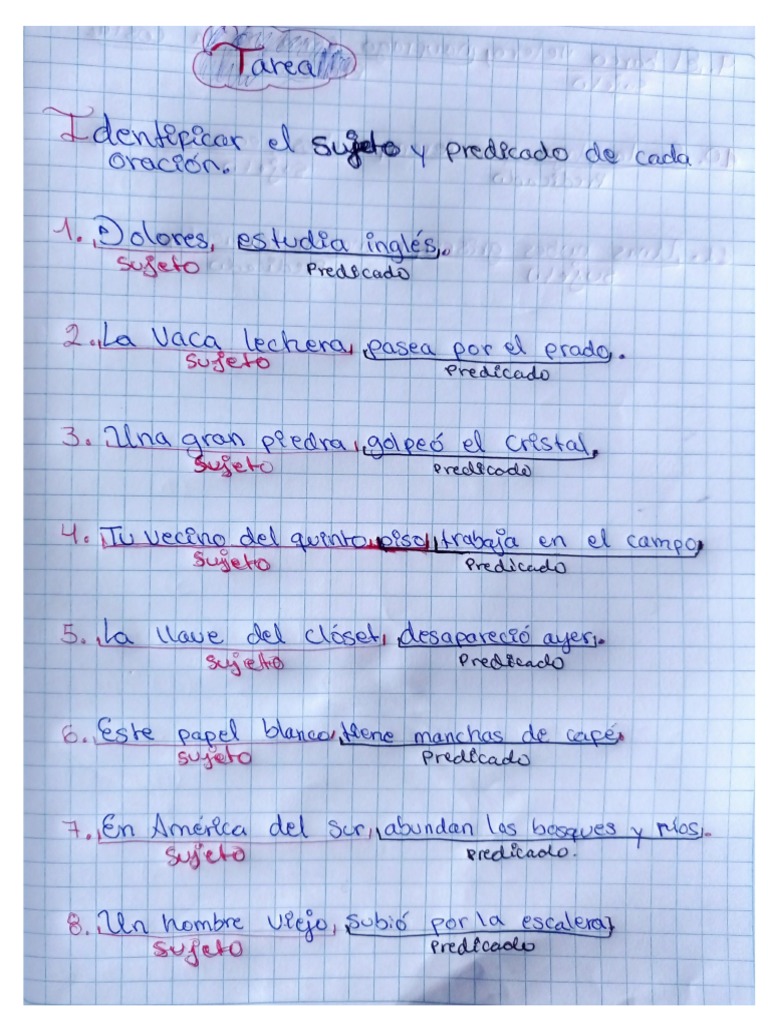 Tarea
Identificar el sujeto y predicado de cada
oración.
1. Dolores, estudia inglés.
Sujeto Predicado
2. La vaca lechera, pasea por el prado.
Sujeto Predicado
3. Una gran piedra, golpeó el cristal.
Sujeto Predicado
4. Tu vecino del quinto piso, trabaja en el campo
Sujeto Predicado
5. La llave del clóset, desapareció ayer.
Sujeto Predicado
6. Este papel blanco, tiene manchas de café.
Sujeto Predicado
7. En América del Sur, abundan los bosques y ríos.
Sujeto Predicado.
8. Un hombre viejo, subió por la escalera
Sujeto Predicado